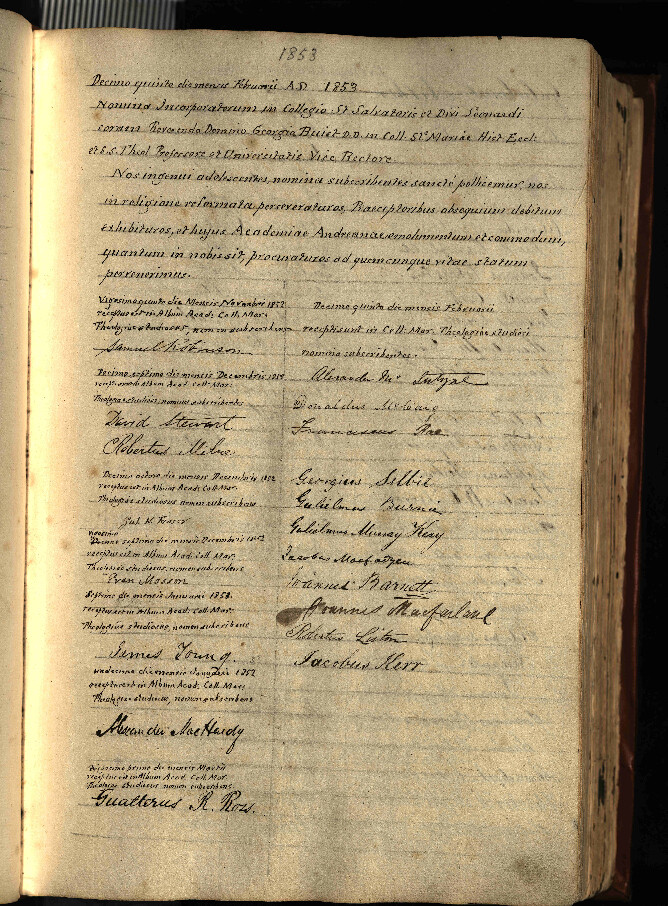 1853
Decimo quinto die mensis Februarii A.D. 1853
Nomina Incorporatorum in Collegio St Salvatoris et Divi Leonardi
coram Reverendo Domino Georgio Buist D.D. in Coll. Stae Mariae Hist Eccl:
et S.S. Theol Professore et Universitatis Vice Rectore
Nos ingenui adolescentes, nomina subscribentes, sancté pollicemur, nos
in religione reformata perseveraturos, Praeceptoribus obsequium debitum
exhibituros, et hujus Academiae Andreanae emolumentum et commodum,
quantum in nobis sit, procuraturos ad quemcunque vitae statum
pervenerimus.
Vigesimo quinto die Mensis Novembris 1852
receptus est in Album Acad: Coll. Mar:
Theologiae studiosus, nomen subscribens
Samuel Robinson
Decimo septimo die mensis Decembris
recepti in Album Acad: Coll. Mar:
Theologiae studiosi, nomina subscribentes
David Stewart
Robertus Milne
Decimo octavo die mensis Decembris 1852
receptus est in Album Acad: Coll. Mar.
Theologiae studiosus nomen subscribens
Gul. W. Fraser
vigesimo
Decimo septimo die mensis Decembris 1852
receptus est in Album Acad. Coll. Mar.
Theologiae studiosus, nomen subscribens
Evan Masson
Septimo die mensis Januarii 1853
receptus est in Album Acad: Coll. Mar.
Theologiae studiosus, nomen subscribens
James Young.
undecimo die mensis Januarii 1853
receptus est in Album Acad. Coll. Mar.
Theologiae studiosus, nomen subscribens
Alexander MacHardy
primo die mensis Martii
receptus est in Album Acad. Coll. Mar.
Theologiae studiosus nomen subscribens
Gualterus R. Ross.
Decimo quinto die mensis Februarii
recepti sunt in Coll. Mar. Theologiae studiosi
nomina subscribentes.
Alexander Mc
Donaldus
Franciscus Rae
Georgius Selbie
Gulielmus Burnie
Gulielmus Murray Keay
Jacobus Macfadzen
Ioannes Barnett
Joannes Macfarland
Robertus Liston
Jacobus Kerr